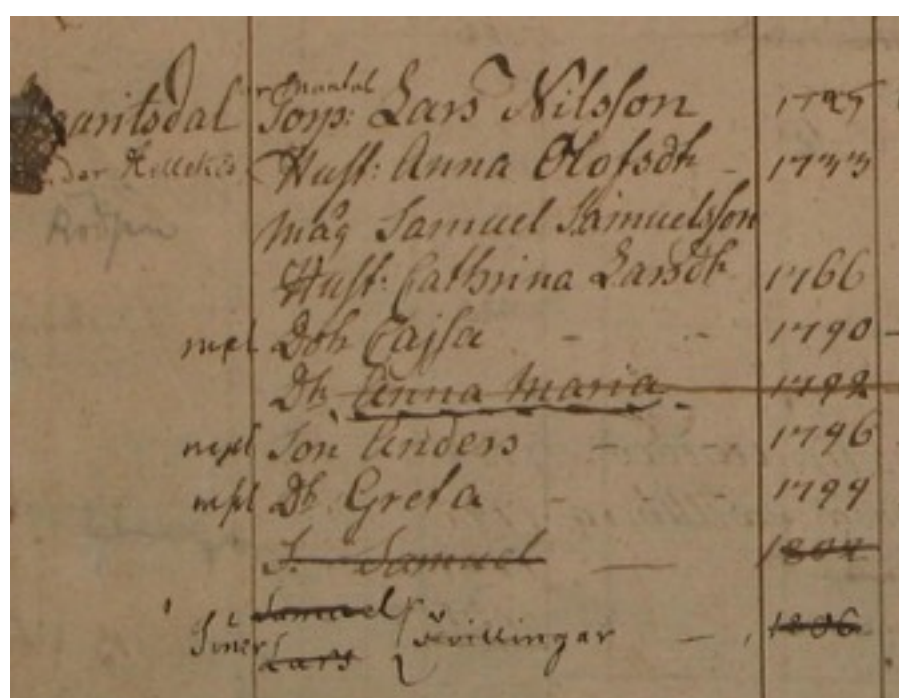 Mantal
Torp: Lars Nilsson 1725
Hust: Anna Olofsdtr - 1733
Måg Samuel Samuelsson
Hust: Cathrina Larsdtr 1766
mpl Dotr Cajsa - - 1790 -
Dtr Anna Maria 1792
mpl Son Anders - 1796 -
mpl Dtr Greta - 1799
S. Samuel — 1804
Samuel
Söner Tvillingar - 1806
Lars